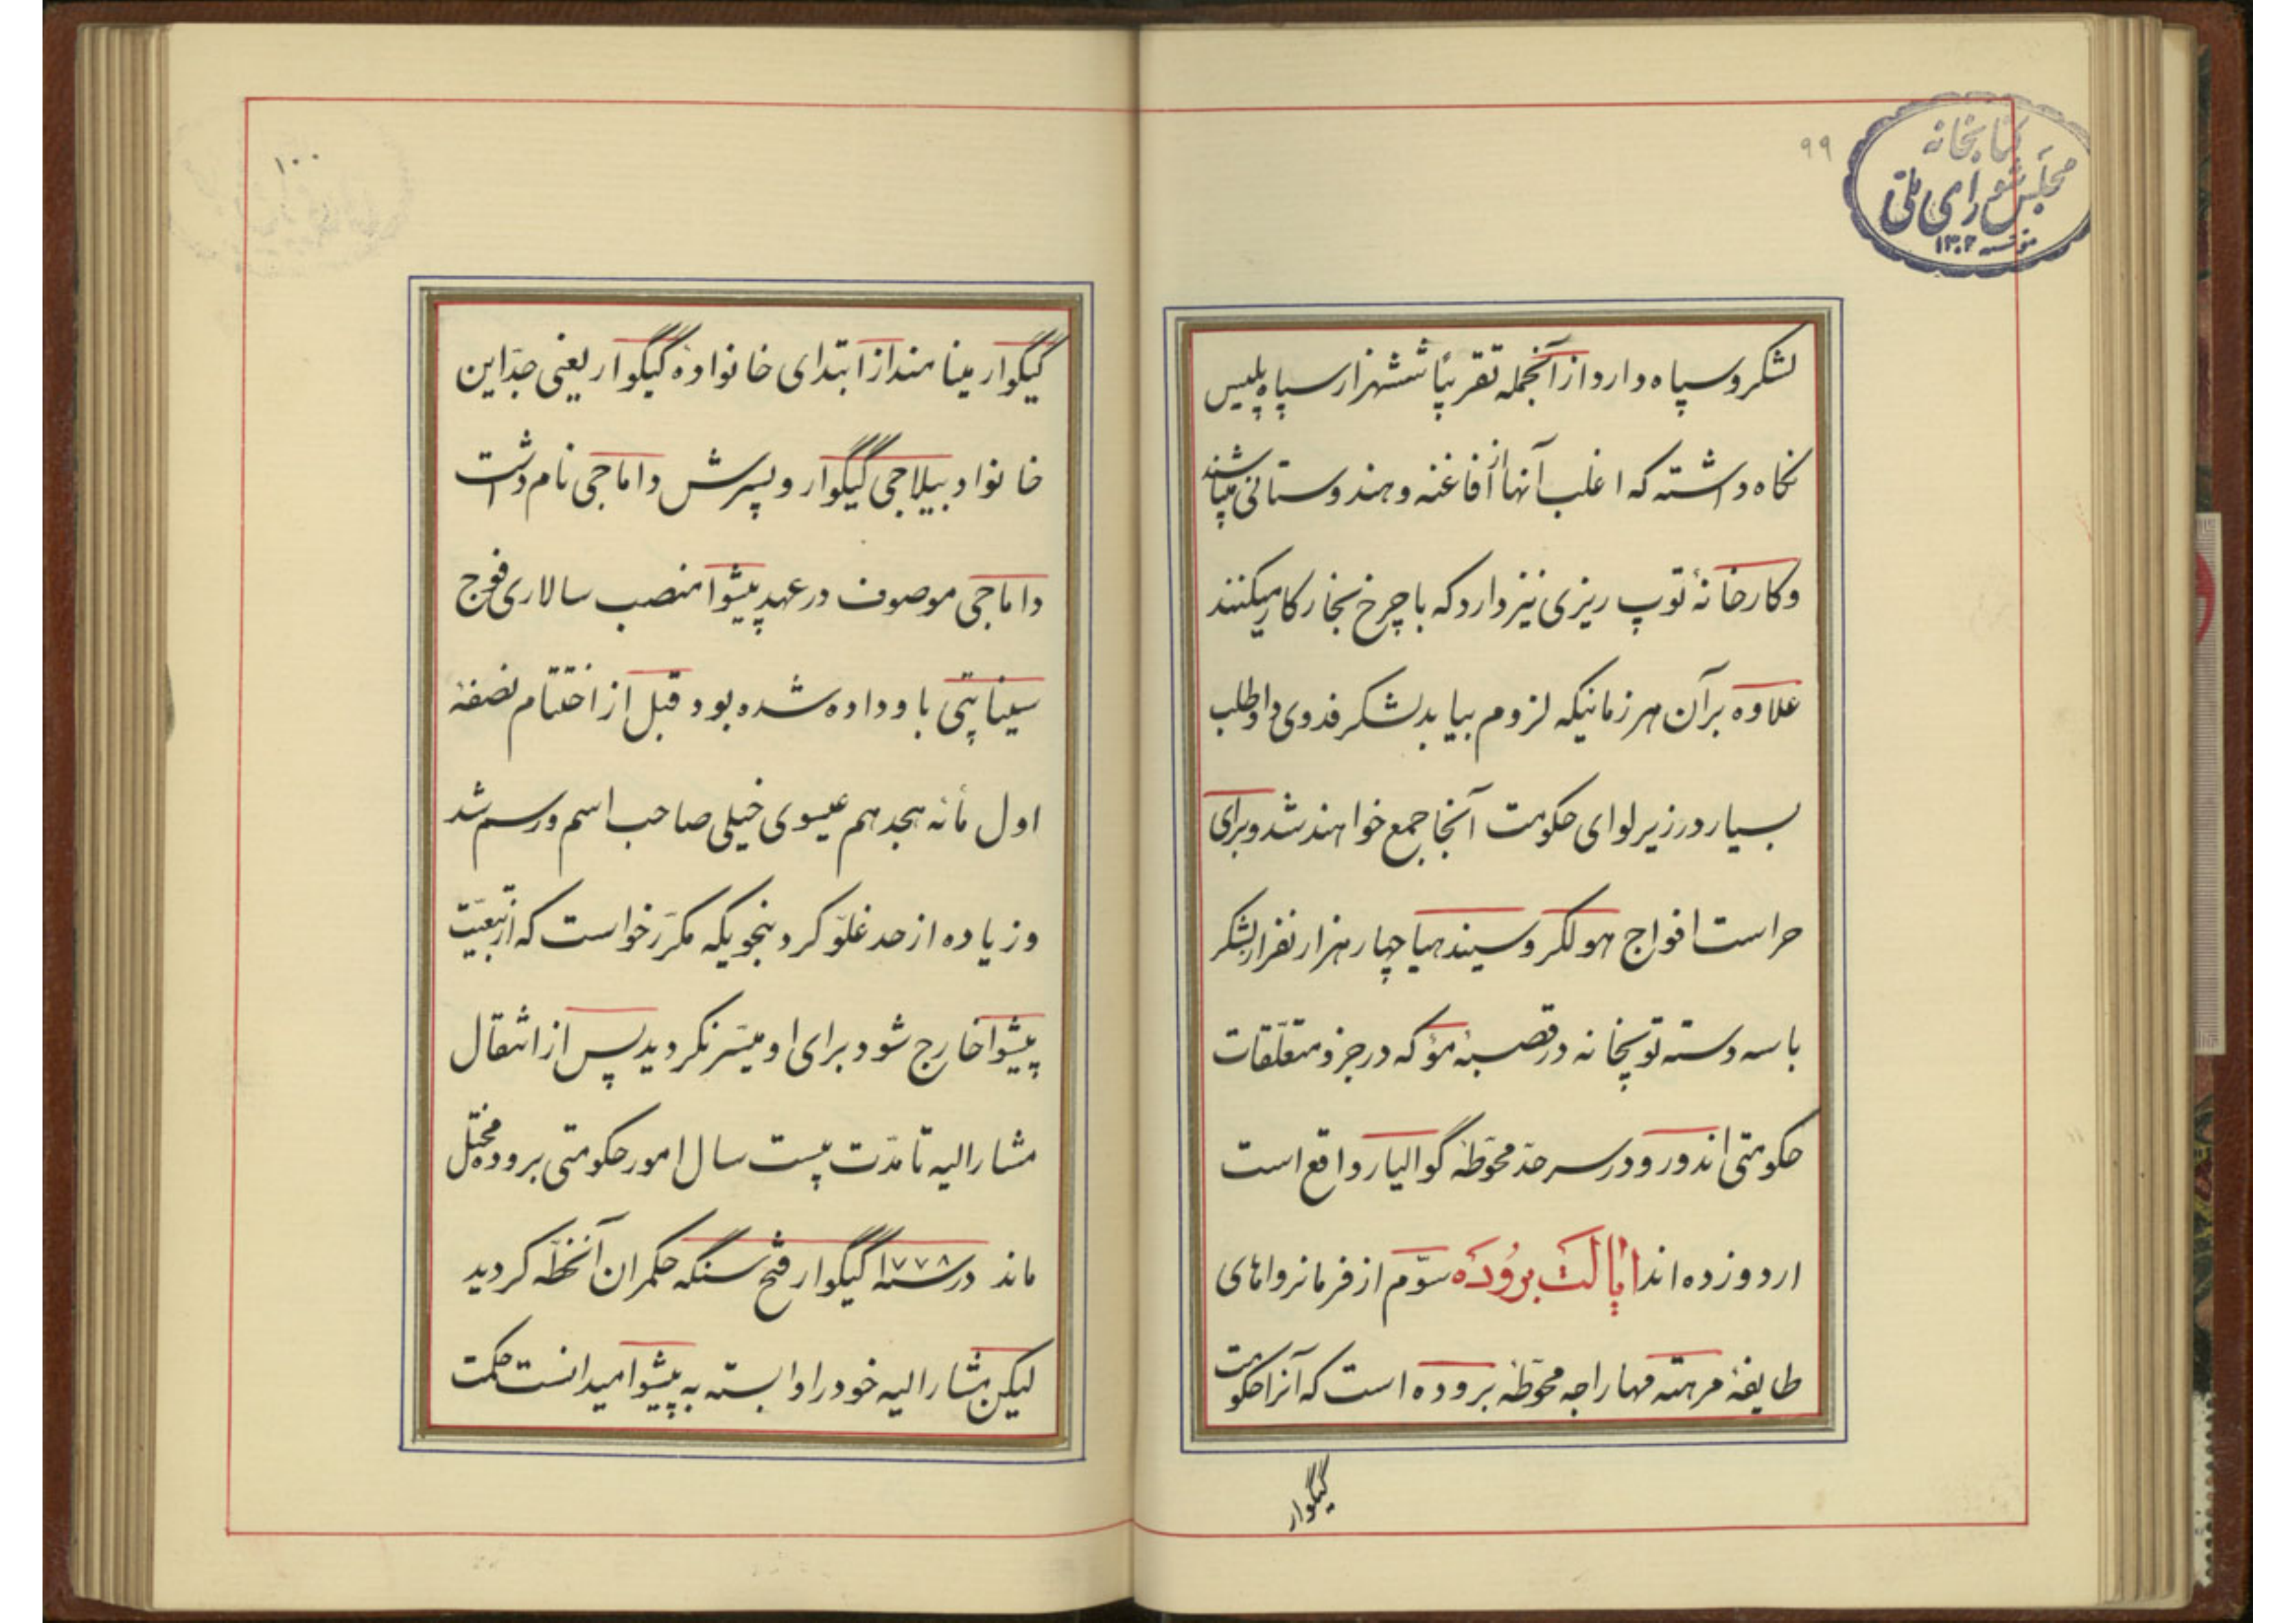 ۹۹
کتابخانه
مجلس شورای ملی
لشکر و سپاه دارد از آنجمله تقریباً ششهزار سپاه پلیس
نگاه داشته که اغلب آنها از افاغنه و هندوستانی میباشند
و کارخانهٔ توپ ریزی نیز دارد که با چرخ بخار کار میکنند
علاوه بر آن هر زمانیکه لزوم بیابد لشکر فدوی داوطلب
بسیار در زیر لوای حکومت آنجا جمع خواهند شد و برای
حراست افواج هولکر و سیندهیا چهار هزار نفر از لشکر
با سه دسته توپخانه در قصبهٔ مؤ که در جزو متعلّقات
حکومتی اندور و در سرحدّ محوّطهٔ گوالیار واقع است
اردو زده اند ایالت بروده سوّم از فرمانرواهای
طایفهٔ مرهته مهاراجه محوّطهٔ بروده است که آنرا حکومت
گیگوار
۱۰۰
گیگوار مینامند از ابتدای خانوادهٔ گیگوار یعنی جدّ این
خانواد بیلاجی گیگوار و پسرش داماجی نام داشت
داماجی موصوف در عهد پیشوا منصب سالاری فوج
سیناپتی باو داده شده بود قبل از اختتام نصفهٔ
اول مأنه هجدهم عیسوی خیلی صاحب اسم و رسم شد
و زیاده از حد غلوّ کرد بنحویکه مکرّر خواست که از تبعیّت
پیشوا خارج شود برای او میسّر نکردید پس از انتقال
مشارالیه تا مدّت بیست سال امور حکومتی بروده مختل
ماند در سنه ۱۷۷۸ گیگوار فتح سنگه حکمران آنخطّه کردید
لیکن مشارالیه خود را وابسته به پیشوا میدانست حکمت